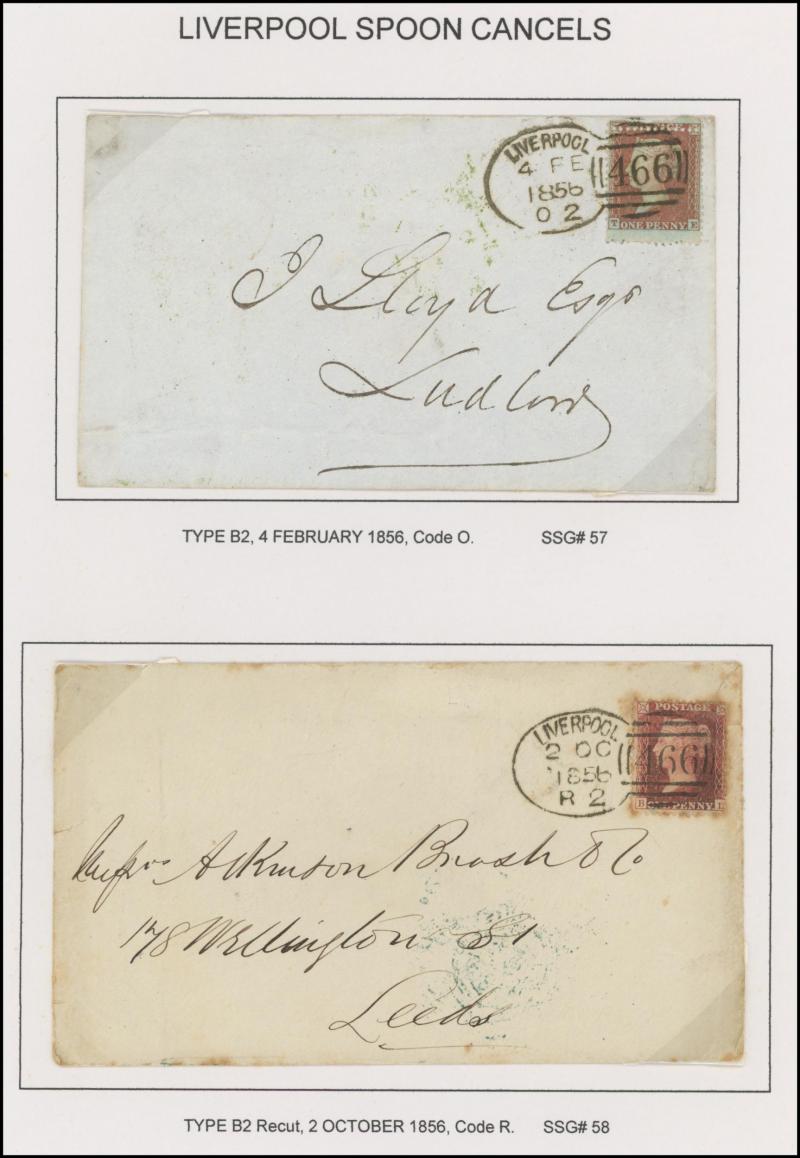 LIVERPOOL SPOON CANCELS
LIVERPOOL
4 FE
1856
O 2
466
POSTAGE
T ONE PENNY E
J Lloyd Esqr
Ludlow
TYPE B2, 4 FEBRUARY 1856, Code O. SSG# 57
LIVERPOOL
2 OC
1856
R 2
466
POSTAGE
B ONE PENNY
Messrs Atkinson Brush & Co
178 Wellington St
Leeds
TYPE B2 Recut, 2 OCTOBER 1856, Code R. SSG# 58